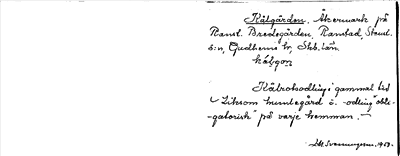 Kålgården. Åkermark på
Ranst. Bredegården, Ranstad, Stenst.
s:n, Gudhems hr, Skb. län.
kálgon
Kålrotsodling i gammal tid
Liksom humlegård o. -odling "obli-
gatorisk" på varje hemman.
1959.